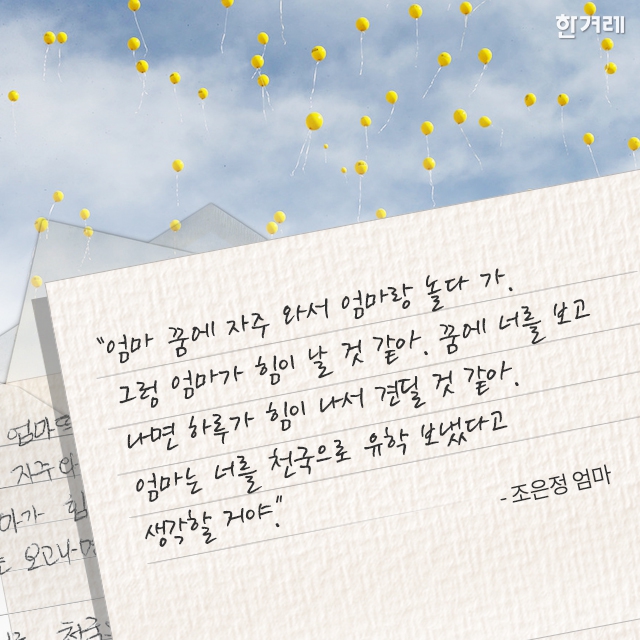 한겨레
"엄마 꿈에 자주 와서 엄마랑 놀다 가.
그럼 엄마가 힘이 날 것 같아. 꿈에 너를 보고
나면 하루가 힘이 나서 견딜 것 같아.
엄마는 너를 천국으로 유학 보냈다고
생각할 거야."
- 조은정 엄마
엄마
자주 와
마가 힘
보고나면
천국